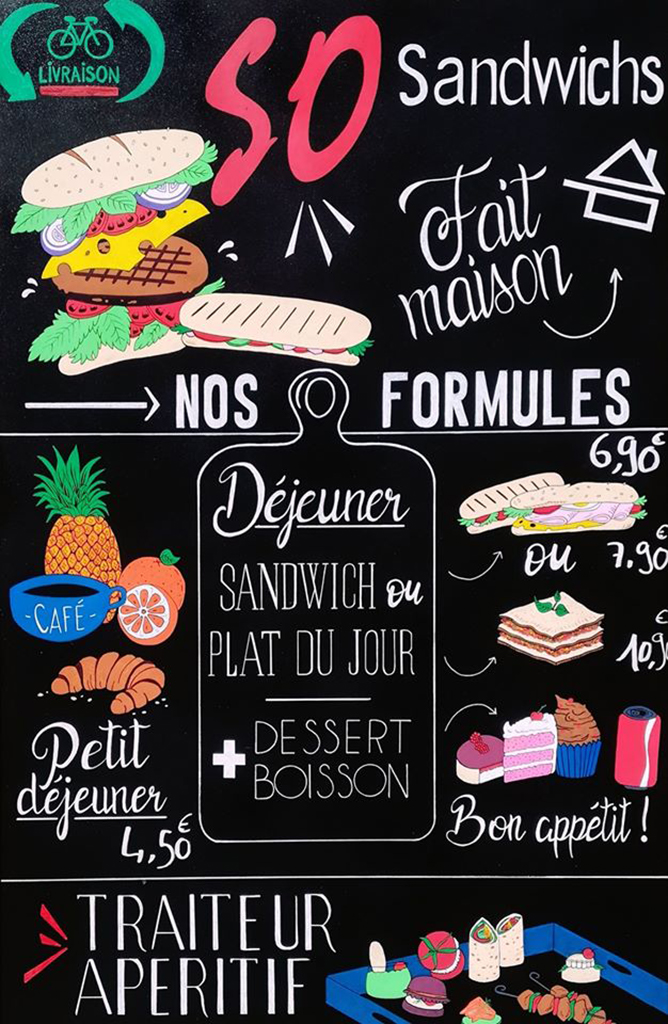 LIVRAISON
SO
Sandwichs
Fait
maison
NOS FORMULES
Déjeuner
SANDWICH ou
PLAT DU JOUR
+ DESSERT
BOISSON
6,90€
ou 7.90€
CAFÉ
Petit
déjeuner
4,50€
Bon appétit !
TRAITEUR
APERITIF